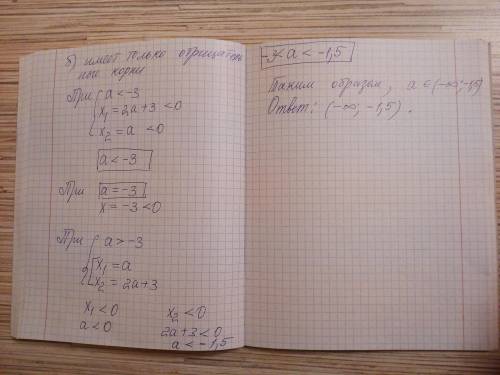 б) имеет только отрицатель
ные корни
При { a < -3
x₁ = 2a+3 < 0
x₂ = a < 0
a < -3
При a = -3
x = -3 < 0
При { a > -3
x₁ = a
x₂ = 2a+3
x₁ < 0 x₂ < 0
a < 0 2a+3 < 0
a < -1,5
-3 < a < -1,5
Таким образом, a ∈ (-∞; -1,5)
Ответ: (-∞; -1,5).